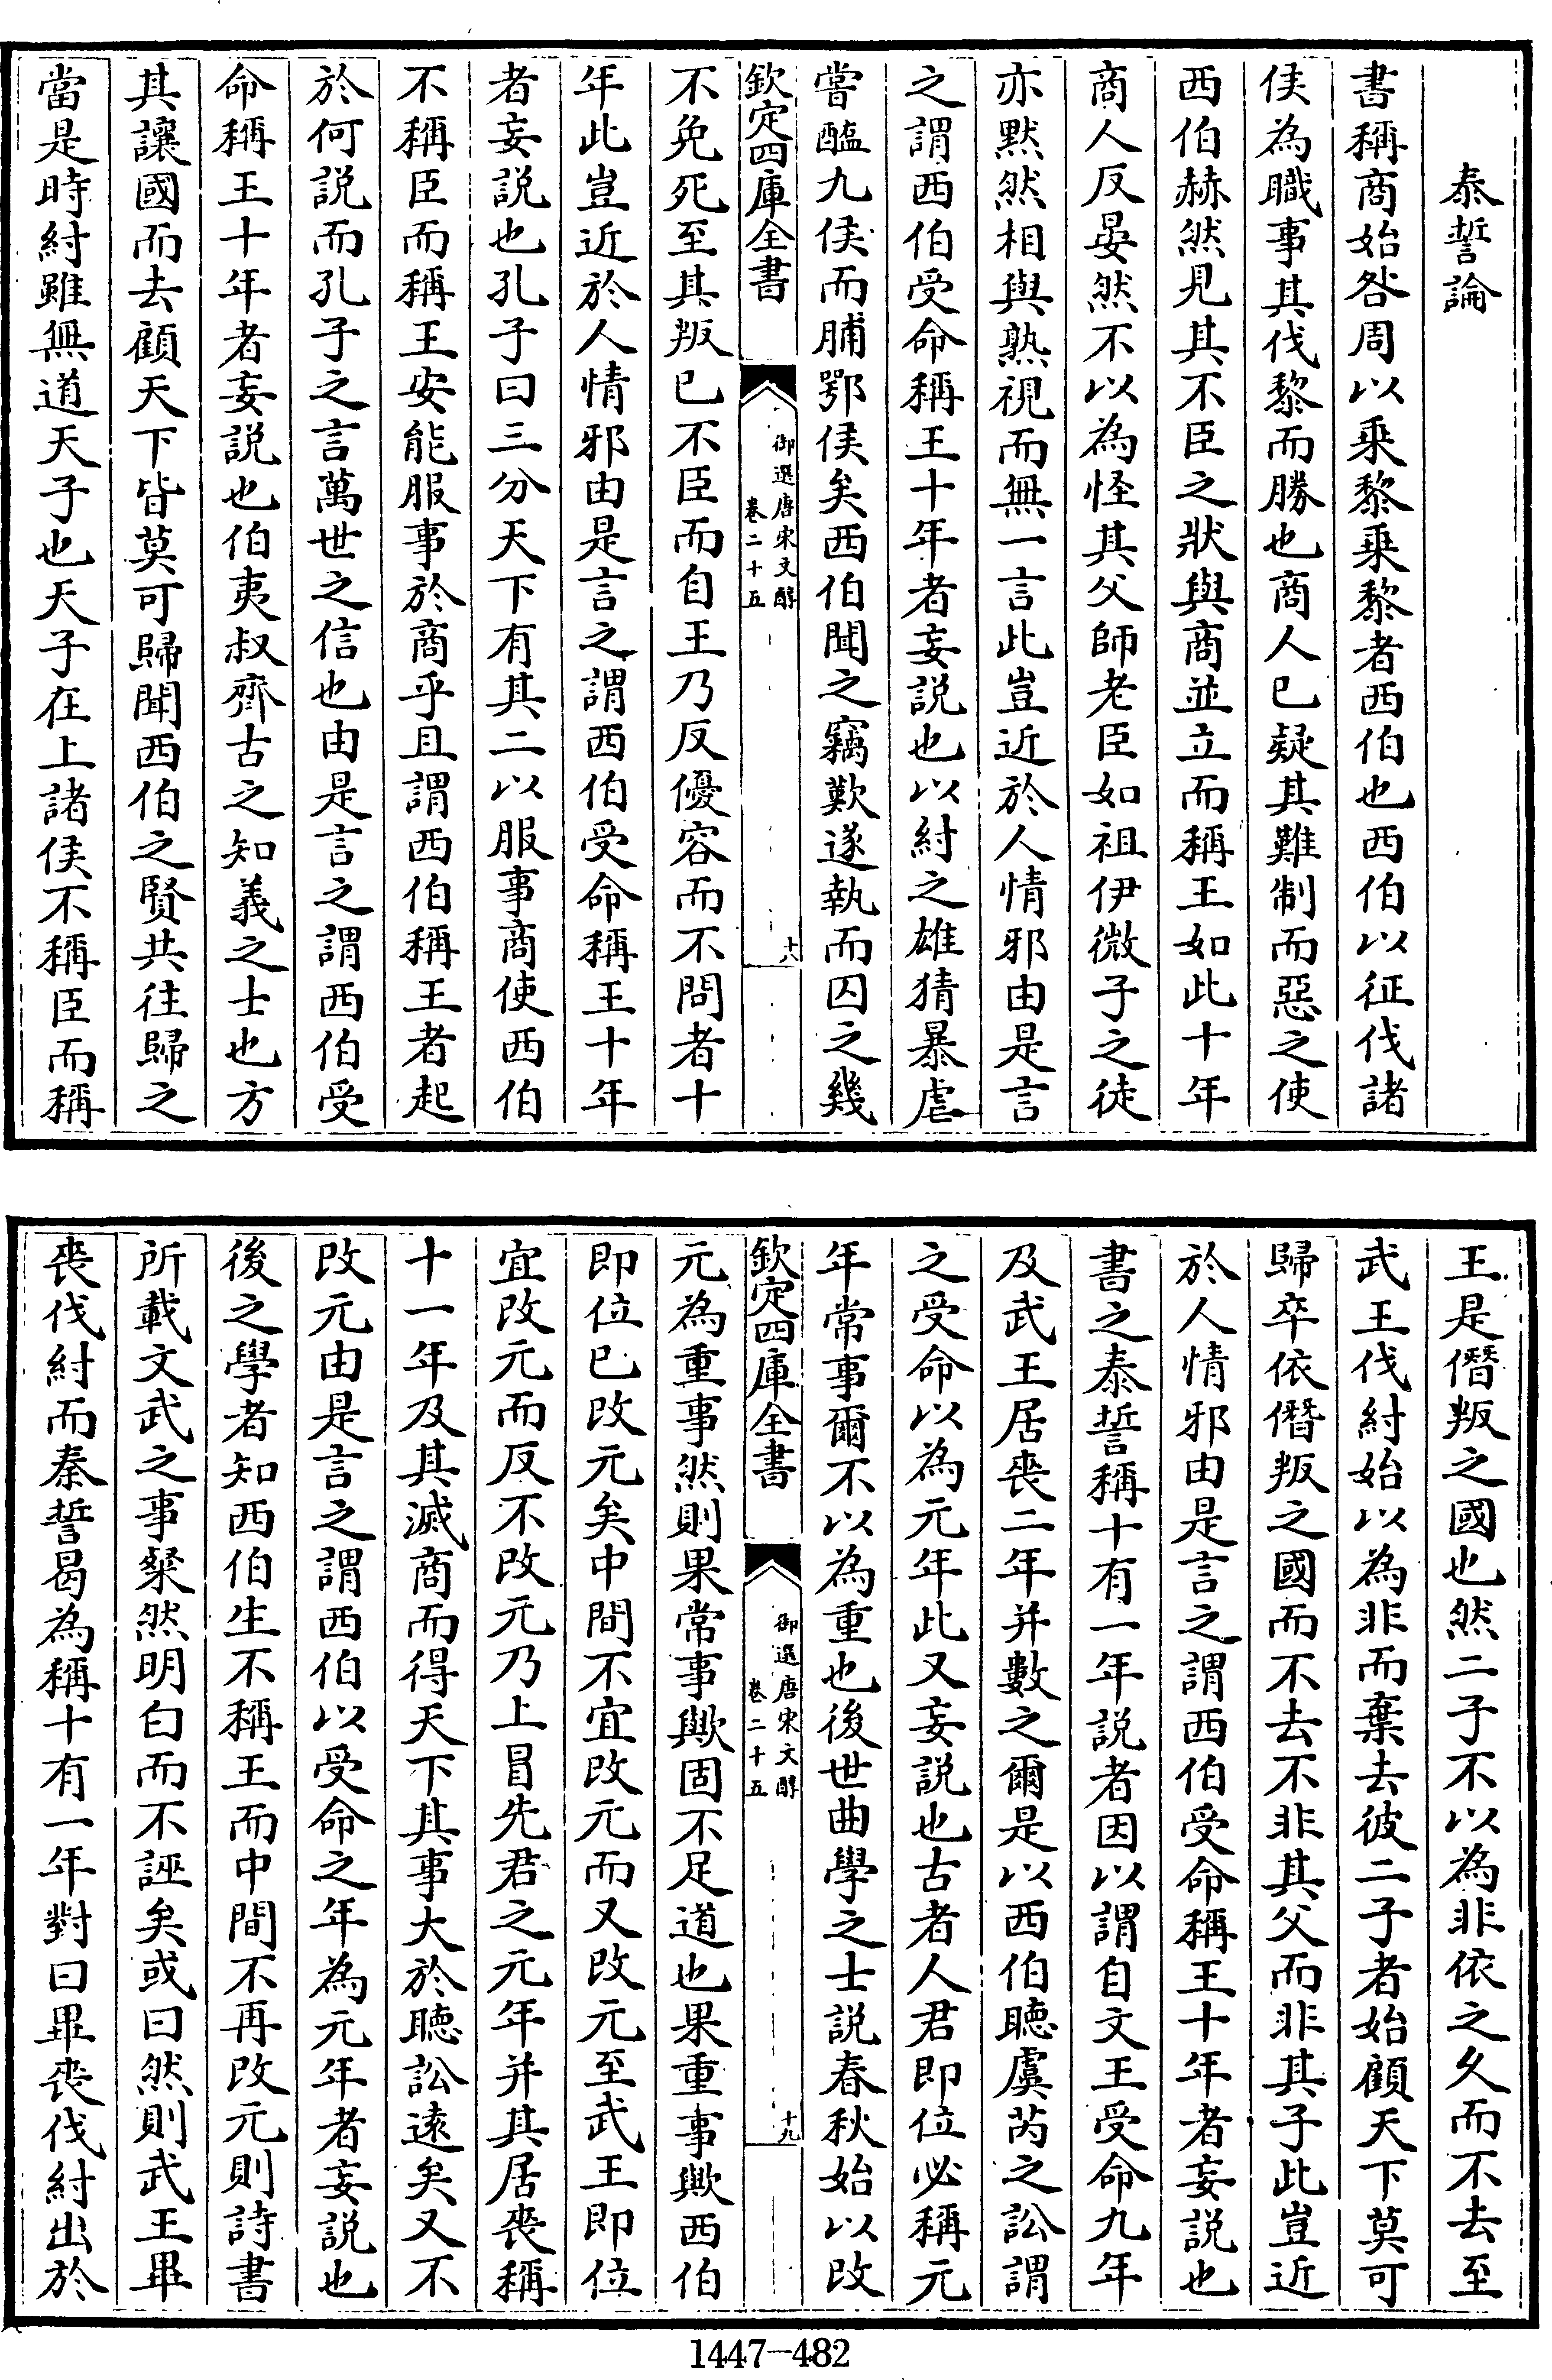 泰誓論
書稱商始咎周以乘黎乘黎者西伯也西伯以征伐諸
侯為職事其伐黎而勝也商人已疑其難制而惡之使
西伯赫然見其不臣之狀與商並立而稱王如此十年
商人反晏然不以為怪其父師老臣如祖伊微子之徒
亦黙然相與熟視而無一言此豈近於人情邪由是言
之謂西伯受命稱王十年者妄説也以紂之雄猜暴虐
嘗醢九侯而脯鄂侯矣西伯聞之竊歎遂執而囚之幾
欽定四庫全書
御選唐宋文醇
卷二十五
十八
不免死至其叛已不臣而自王乃反優容而不問者十
年此豈近於人情邪由是言之謂西伯受命稱王十年
者妄説也孔子曰三分天下有其二以服事商使西伯
不稱臣而稱王安能服事於商乎且謂西伯稱王者起
於何説而孔子之言萬世之信也由是言之謂西伯受
命稱王十年者妄説也伯夷叔齊古之知義之士也方
其讓國而去顧天下皆莫可歸聞西伯之賢共往歸之
當是時紂雖無道天子也天子在上諸侯不稱臣而稱
王是僭叛之國也然二子不以為非依之久而不去至
武王伐紂始以為非而棄去彼二子者始顧天下莫可
歸卒依僭叛之國而不去不非其父而非其子此豈近
於人情邪由是言之謂西伯受命稱王十年者妄説也
書之泰誓稱十有一年説者因以謂自文王受命九年
及武王居喪二年并數之爾是以西伯聽虞芮之訟謂
之受命以為元年此又妄説也古者人君即位必稱元
年常事爾不以為重也後世曲學之士説春秋始以改
欽定四庫全書
御選唐宋文醇
卷二十五
十九
元為重事然則果常事歟固不足道也果重事歟西伯
即位已改元矣中間不宜改元而又改元至武王即位
宜改元而反不改元乃上冒先君之元年并其居喪稱
十一年及其滅商而得天下其事大於聽訟遠矣又不
改元由是言之謂西伯以受命之年為元年者妄説也
後之學者知西伯生不稱王而中間不再改元則詩書
所載文武之事粲然明白而不誣矣或曰然則武王畢
喪伐紂而泰誓曷為稱十有一年對曰畢喪伐紂出於
1447-482